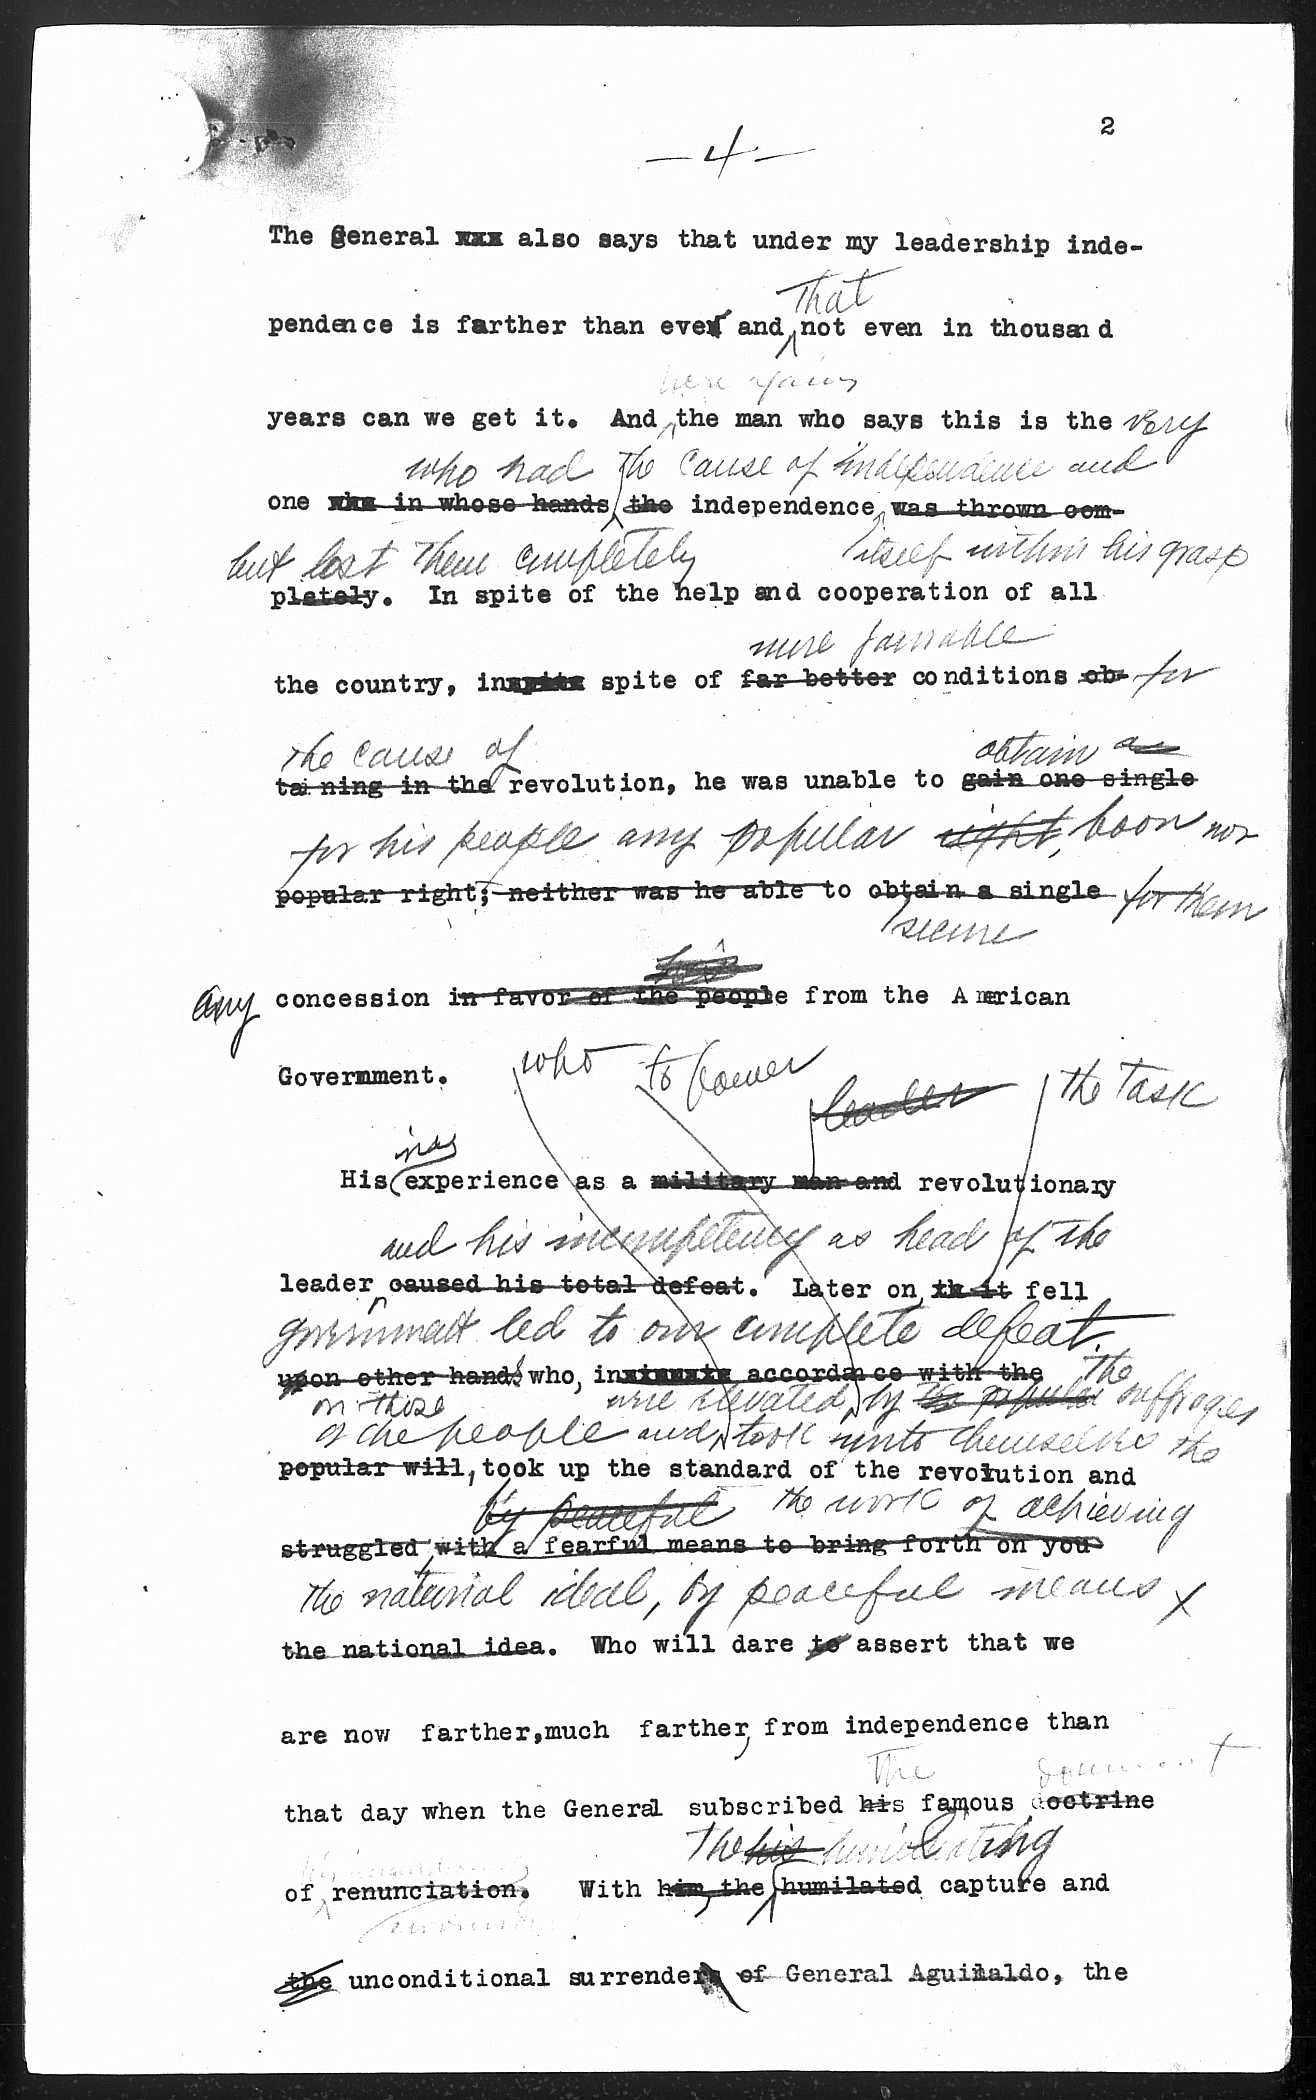 2
—4—
The General xxx also says that under my leadership inde-
that
pendence is farther than ever and not even in thousand
here again
years can we get it. And the man who says this is the very
who had the cause of independence and
one who in whose hands the independence was thrown com-
but lost them completely itself within his grasp
pletely. In spite of the help and cooperation of all
more favorable
the country, in spite of far better conditions ob- for
the cause of obtain a
taining in the revolution, he was unable to gain one single
for his people any popular right, boon nor
popular right; neither was he able to obtain a single for them
secure
his
any concession in favor of the people from the American
who to power
Government.
leader the task
inex
His experience as a military man and revolutionary
and his incompetency as head of the
leader caused his total defeat. Later on, it fell
government led to our complete defeat.
upon other hands who, in accordance with the the
on those were elevated by the popular suffrages
of the people and took unto themselves the
popular will, took up the standard of the revolution and
by peaceful the work of achieving
struggled with a fearful means to bring forth on you
the national ideal, by peaceful means x
the national idea. Who will dare to assert that we
are now farther, much farther, from independence than
The document
that day when the General subscribed his famous doctrine
The his humiliating
of renunciation. With him, the humilated capture and
the unconditional surrender of General Aguinaldo, the